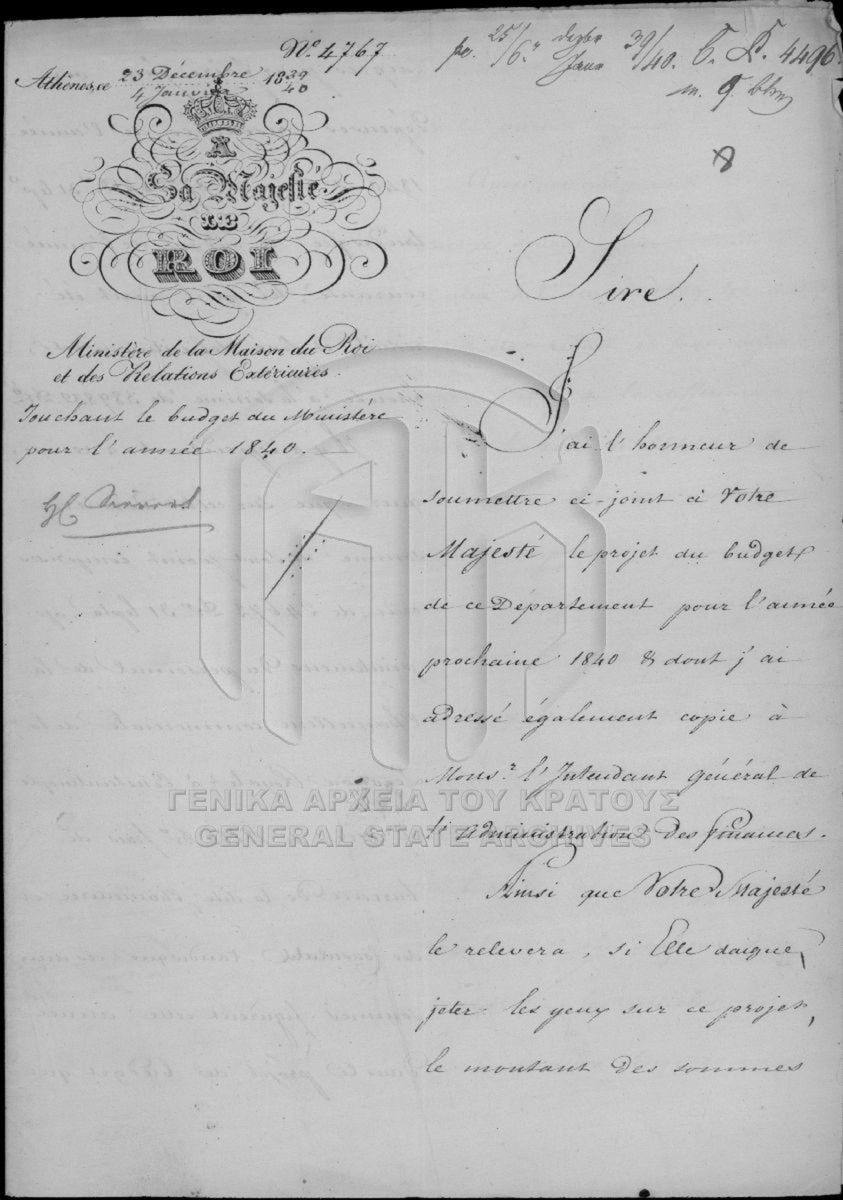 Nº 4767
Athènes, ce 23 Décembre 1839
4 Janvier 40
pr. 25/6. Dezbr/Janr 39/40. 4496
A
Sa Majesté
LE
ROI
Ministère de la Maison du Roi
et des Relations Extérieures.
Touchant le budget du Ministère
pour l'année 1840.
Sire.
J'ai l'honneur de
soumettre ci-joint à Votre
Majesté le projet du budget
de ce Département pour l'année
prochaine 1840 & dont j'ai
adressé également copie à
Monsr. l'Intendant général de
l'Administration des finances.
Ainsi que Votre Majesté
le relevera, si Elle daigne
jeter les yeux sur ce projet,
le montant des sommes
ΓΕΝΙΚΑ ΑΡΧΕΙΑ ΤΟΥ ΚΡΑΤΟΥΣ
GENERAL STATE ARCHIVES